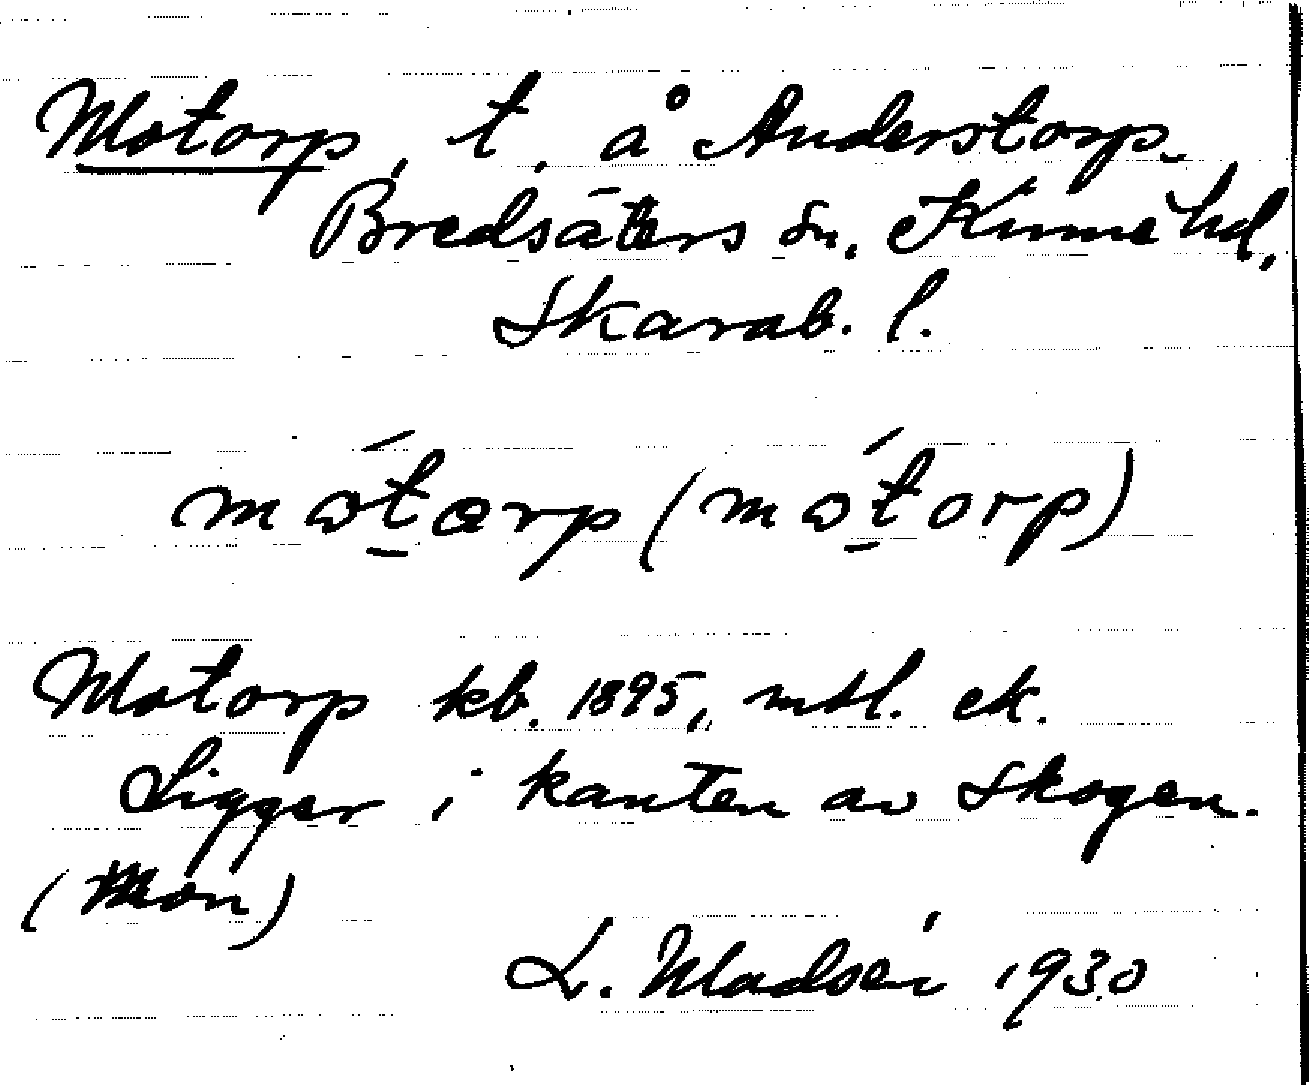 Motorp, t. å Anderstorp.
Bredsäters sn. Kinne hd,
Skarab. l.
mωt́ɵrp (mωt́orp)
Motorp kb. 1895, mtl. ek.
Ligger i kanten av skogen.
(Mon)
L. Madsén 1930